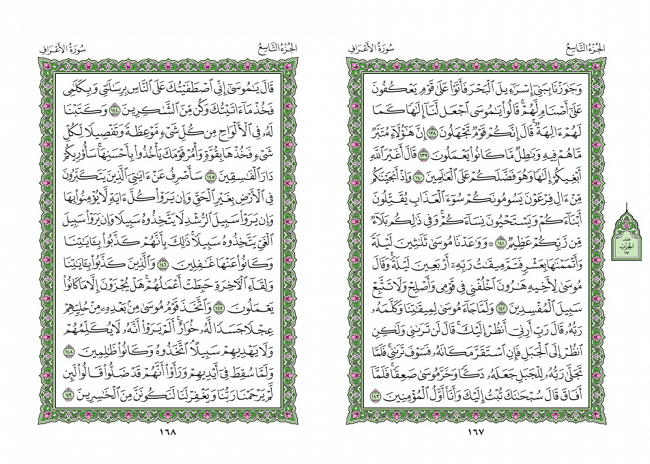 الجُزْءُ التَّاسِعُ
سُورَةُ الأَعْرَافِ
وَجَٰوَزْنَا بِبَنِىٓ إِسْرَٰٓءِيلَ ٱلْبَحْرَ فَأَتَوْا۟ عَلَىٰ قَوْمٍ يَعْكُفُونَ
عَلَىٰٓ أَصْنَامٍ لَّهُمْ ۚ قَالُوا۟ يَٰمُوسَى ٱجْعَل لَّنَآ إِلَٰهًا كَمَا
لَهُمْ ءَالِهَةٌ ۚ قَالَ إِنَّكُمْ قَوْمٌ تَجْهَلُونَ ١٣٨ إِنَّ هَٰٓؤُلَآءِ مُتَبَّرٌ
مَّا هُمْ فِيهِ وَبَٰطِلٌ مَّا كَانُوا۟ يَعْمَلُونَ ١٣٩ قَالَ أَغَيْرَ ٱللَّهِ
أَبْغِيكُمْ إِلَٰهًا وَهُوَ فَضَّلَكُمْ عَلَى ٱلْعَٰلَمِينَ ١٤٠ وَإِذْ أَنجَيْنَٰكُم
مِّنْ ءَالِ فِرْعَوْنَ يَسُومُونَكُمْ سُوٓءَ ٱلْعَذَابِ ۖ يُقَتِّلُونَ
أَبْنَآءَكُمْ وَيَسْتَحْيُونَ نِسَآءَكُمْ ۚ وَفِى ذَٰلِكُم بَلَآءٌ
مِّن رَّبِّكُمْ عَظِيمٌ ١٤١ وَوَٰعَدْنَا مُوسَىٰ ثَلَٰثِينَ لَيْلَةً
وَأَتْمَمْنَٰهَا بِعَشْرٍ فَتَمَّ مِيقَٰتُ رَبِّهِۦٓ أَرْبَعِينَ لَيْلَةً ۚ وَقَالَ
مُوسَىٰ لِأَخِيهِ هَٰرُونَ ٱخْلُفْنِى فِى قَوْمِى وَأَصْلِحْ وَلَا تَتَّبِعْ
سَبِيلَ ٱلْمُفْسِدِينَ ١٤٢ وَلَمَّا جَآءَ مُوسَىٰ لِمِيقَٰتِنَا وَكَلَّمَهُۥ
رَبُّهُۥ قَالَ رَبِّ أَرِنِىٓ أَنظُرْ إِلَيْكَ ۚ قَالَ لَن تَرَىٰنِى وَلَٰكِنِ
ٱنظُرْ إِلَى ٱلْجَبَلِ فَإِنِ ٱسْتَقَرَّ مَكَانَهُۥ فَسَوْفَ تَرَىٰنِى ۚ فَلَمَّا
تَجَلَّىٰ رَبُّهُۥ لِلْجَبَلِ جَعَلَهُۥ دَكًّا وَخَرَّ مُوسَىٰ صَعِقًا ۚ فَلَمَّآ
أَفَاقَ قَالَ سُبْحَٰنَكَ تُبْتُ إِلَيْكَ وَأَنَا۠ أَوَّلُ ٱلْمُؤْمِنِينَ ١٤٣
١٦٧
الحِزْبُ
١٧
الجُزْءُ التَّاسِعُ
سُورَةُ الأَعْرَافِ
قَالَ يَٰمُوسَىٰٓ إِنِّى ٱصْطَفَيْتُكَ عَلَى ٱلنَّاسِ بِرِسَٰلَٰتِى وَبِكَلَٰمِى
فَخُذْ مَآ ءَاتَيْتُكَ وَكُن مِّنَ ٱلشَّٰكِرِينَ ١٤٤ وَكَتَبْنَا
لَهُۥ فِى ٱلْأَلْوَاحِ مِن كُلِّ شَىْءٍ مَّوْعِظَةً وَتَفْصِيلًا لِّكُلِّ
شَىْءٍ فَخُذْهَا بِقُوَّةٍ وَأْمُرْ قَوْمَكَ يَأْخُذُوا۟ بِأَحْسَنِهَا ۚ سَأُو۟رِيكُمْ
دَارَ ٱلْفَٰسِقِينَ ١٤٥ سَأَصْرِفُ عَنْ ءَايَٰتِىَ ٱلَّذِينَ يَتَكَبَّرُونَ
فِى ٱلْأَرْضِ بِغَيْرِ ٱلْحَقِّ وَإِن يَرَوْا۟ كُلَّ ءَايَةٍ لَّا يُؤْمِنُوا۟ بِهَا
وَإِن يَرَوْا۟ سَبِيلَ ٱلرُّشْدِ لَا يَتَّخِذُوهُ سَبِيلًا وَإِن يَرَوْا۟ سَبِيلَ
ٱلْغَىِّ يَتَّخِذُوهُ سَبِيلًا ۚ ذَٰلِكَ بِأَنَّهُمْ كَذَّبُوا۟ بِـَٔايَٰتِنَا
وَكَانُوا۟ عَنْهَا غَٰفِلِينَ ١٤٦ وَٱلَّذِينَ كَذَّبُوا۟ بِـَٔايَٰتِنَا
وَلِقَآءِ ٱلْـَٔاخِرَةِ حَبِطَتْ أَعْمَٰلُهُمْ ۚ هَلْ يُجْزَوْنَ إِلَّا مَا كَانُوا۟
يَعْمَلُونَ ١٤٧ وَٱتَّخَذَ قَوْمُ مُوسَىٰ مِنۢ بَعْدِهِۦ مِنْ حُلِيِّهِمْ
عِجْلًا جَسَدًا لَّهُۥ خُوَارٌ ۚ أَلَمْ يَرَوْا۟ أَنَّهُۥ لَا يُكَلِّمُهُمْ
وَلَا يَهْدِيهِمْ سَبِيلًا ۘ ٱتَّخَذُوهُ وَكَانُوا۟ ظَٰلِمِينَ ١٤٨
وَلَمَّا سُقِطَ فِىٓ أَيْدِيهِمْ وَرَأَوْا۟ أَنَّهُمْ قَدْ ضَلُّوا۟ قَالُوا۟ لَئِن
لَّمْ يَرْحَمْنَا رَبُّنَا وَيَغْفِرْ لَنَا لَنَكُونَنَّ مِنَ ٱلْخَٰسِرِينَ ١٤٩
١٦٨